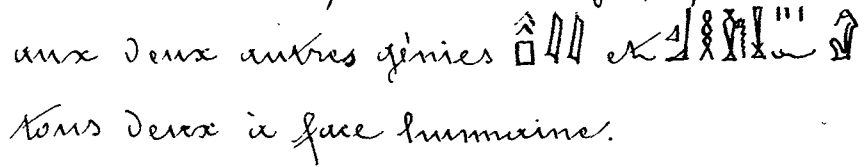 aux deux autres génies et
tous deux à face humaine.